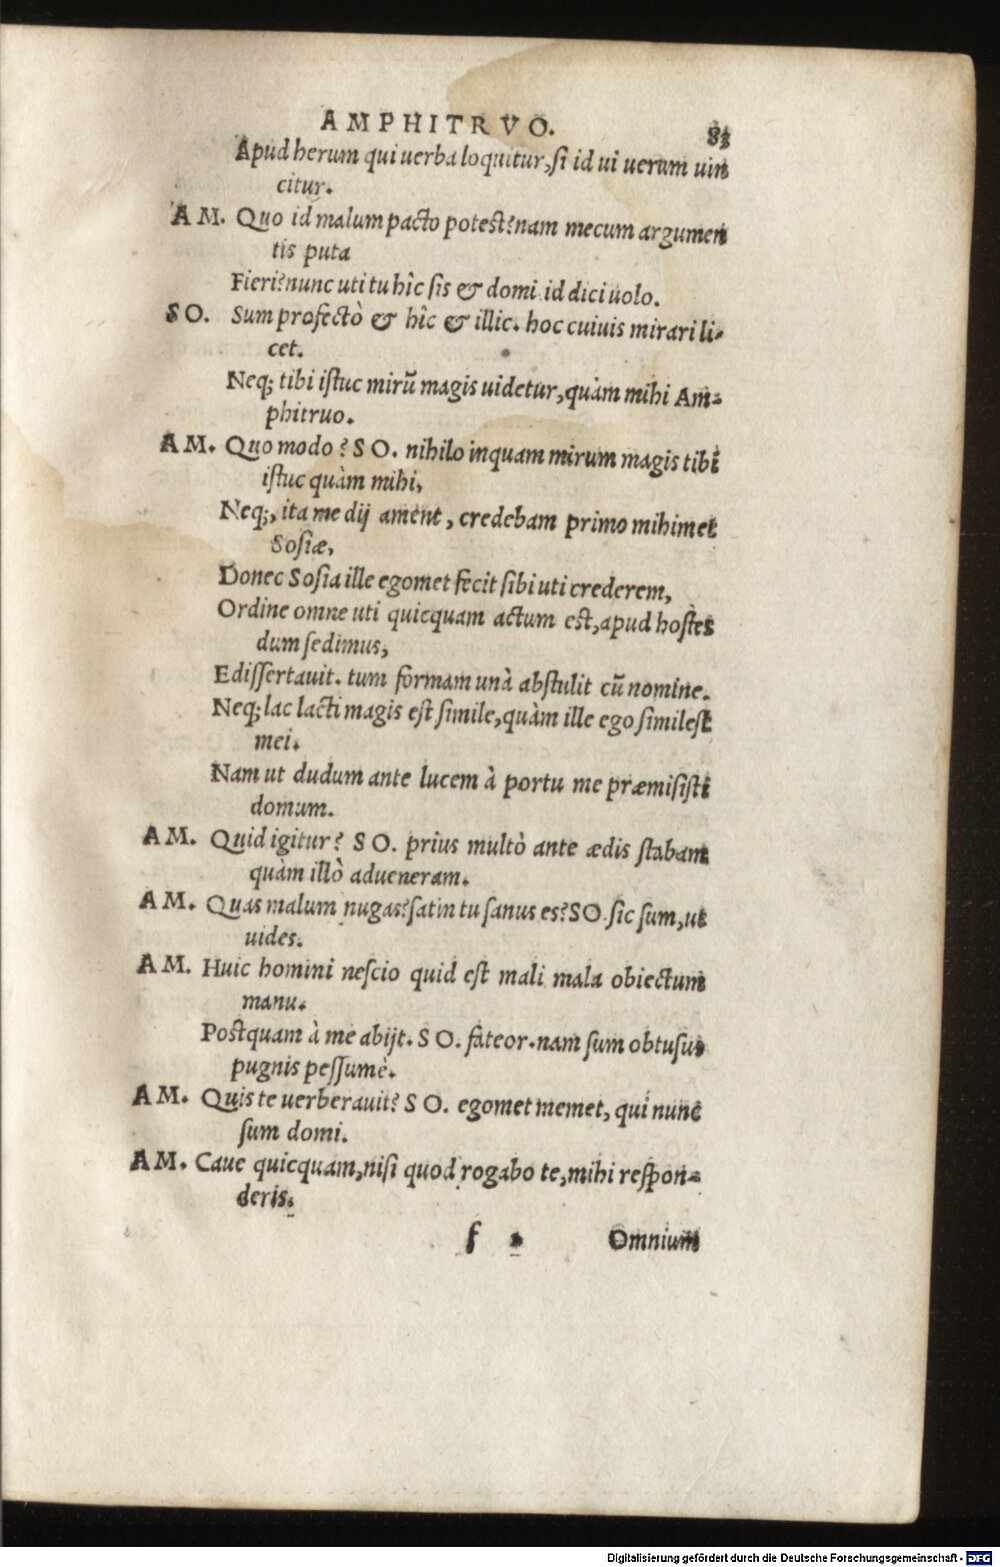 AMPHITRVO. 83
Apud herum qui uerba loquitur, si id ui uerum uin
citur.
AM. Quo id malum pacto potest? nam mecum argumen
tis puta
Fieri? nunc uti tu hîc sis & domi id dici uolo.
SO. Sum profectò & hîc & illic. hoc cuiuis mirari li-
cet.
Neq; tibi istuc mirũ magis uidetur, quàm mihi Am-
phitruo.
AM. Quo modo? SO. nihilo inquam mirum magis tibi
istuc quàm mihi,
Neq;, ita me dij ament, credebam primo mihimet
Sosiæ,
Donec Sosia ille egomet fecit sibi uti crederem,
Ordine omne uti quicquam actum est, apud hostes
dum sedimus,
Edissertauit. tum formam unà abstulit cũ nomine.
Neq; lac lacti magis est simile, quàm ille ego similest
mei.
Nam ut dudum ante lucem à portu me præmisisti
domum.
AM. Quid igitur? SO. prius multò ante ædis stabam
quàm illò adueneram.
AM. Quas malum nugas? satin tu sanus es? SO. sic sum, ut
uides.
AM. Huic homini nescio quid est mali mala obiectum
manu.
Postquam à me abijt. SO. fateor. nam sum obtusus
pugnis pessumè.
AM. Quis te uerberauit? SO. egomet memet, qui nunc
sum domi.
AM. Caue quicquam, nisi quod rogabo te, mihi respon-
deris.
f Omnium
Digitalisierung gefördert durch die Deutsche Forschungsgemeinschaft - DFG